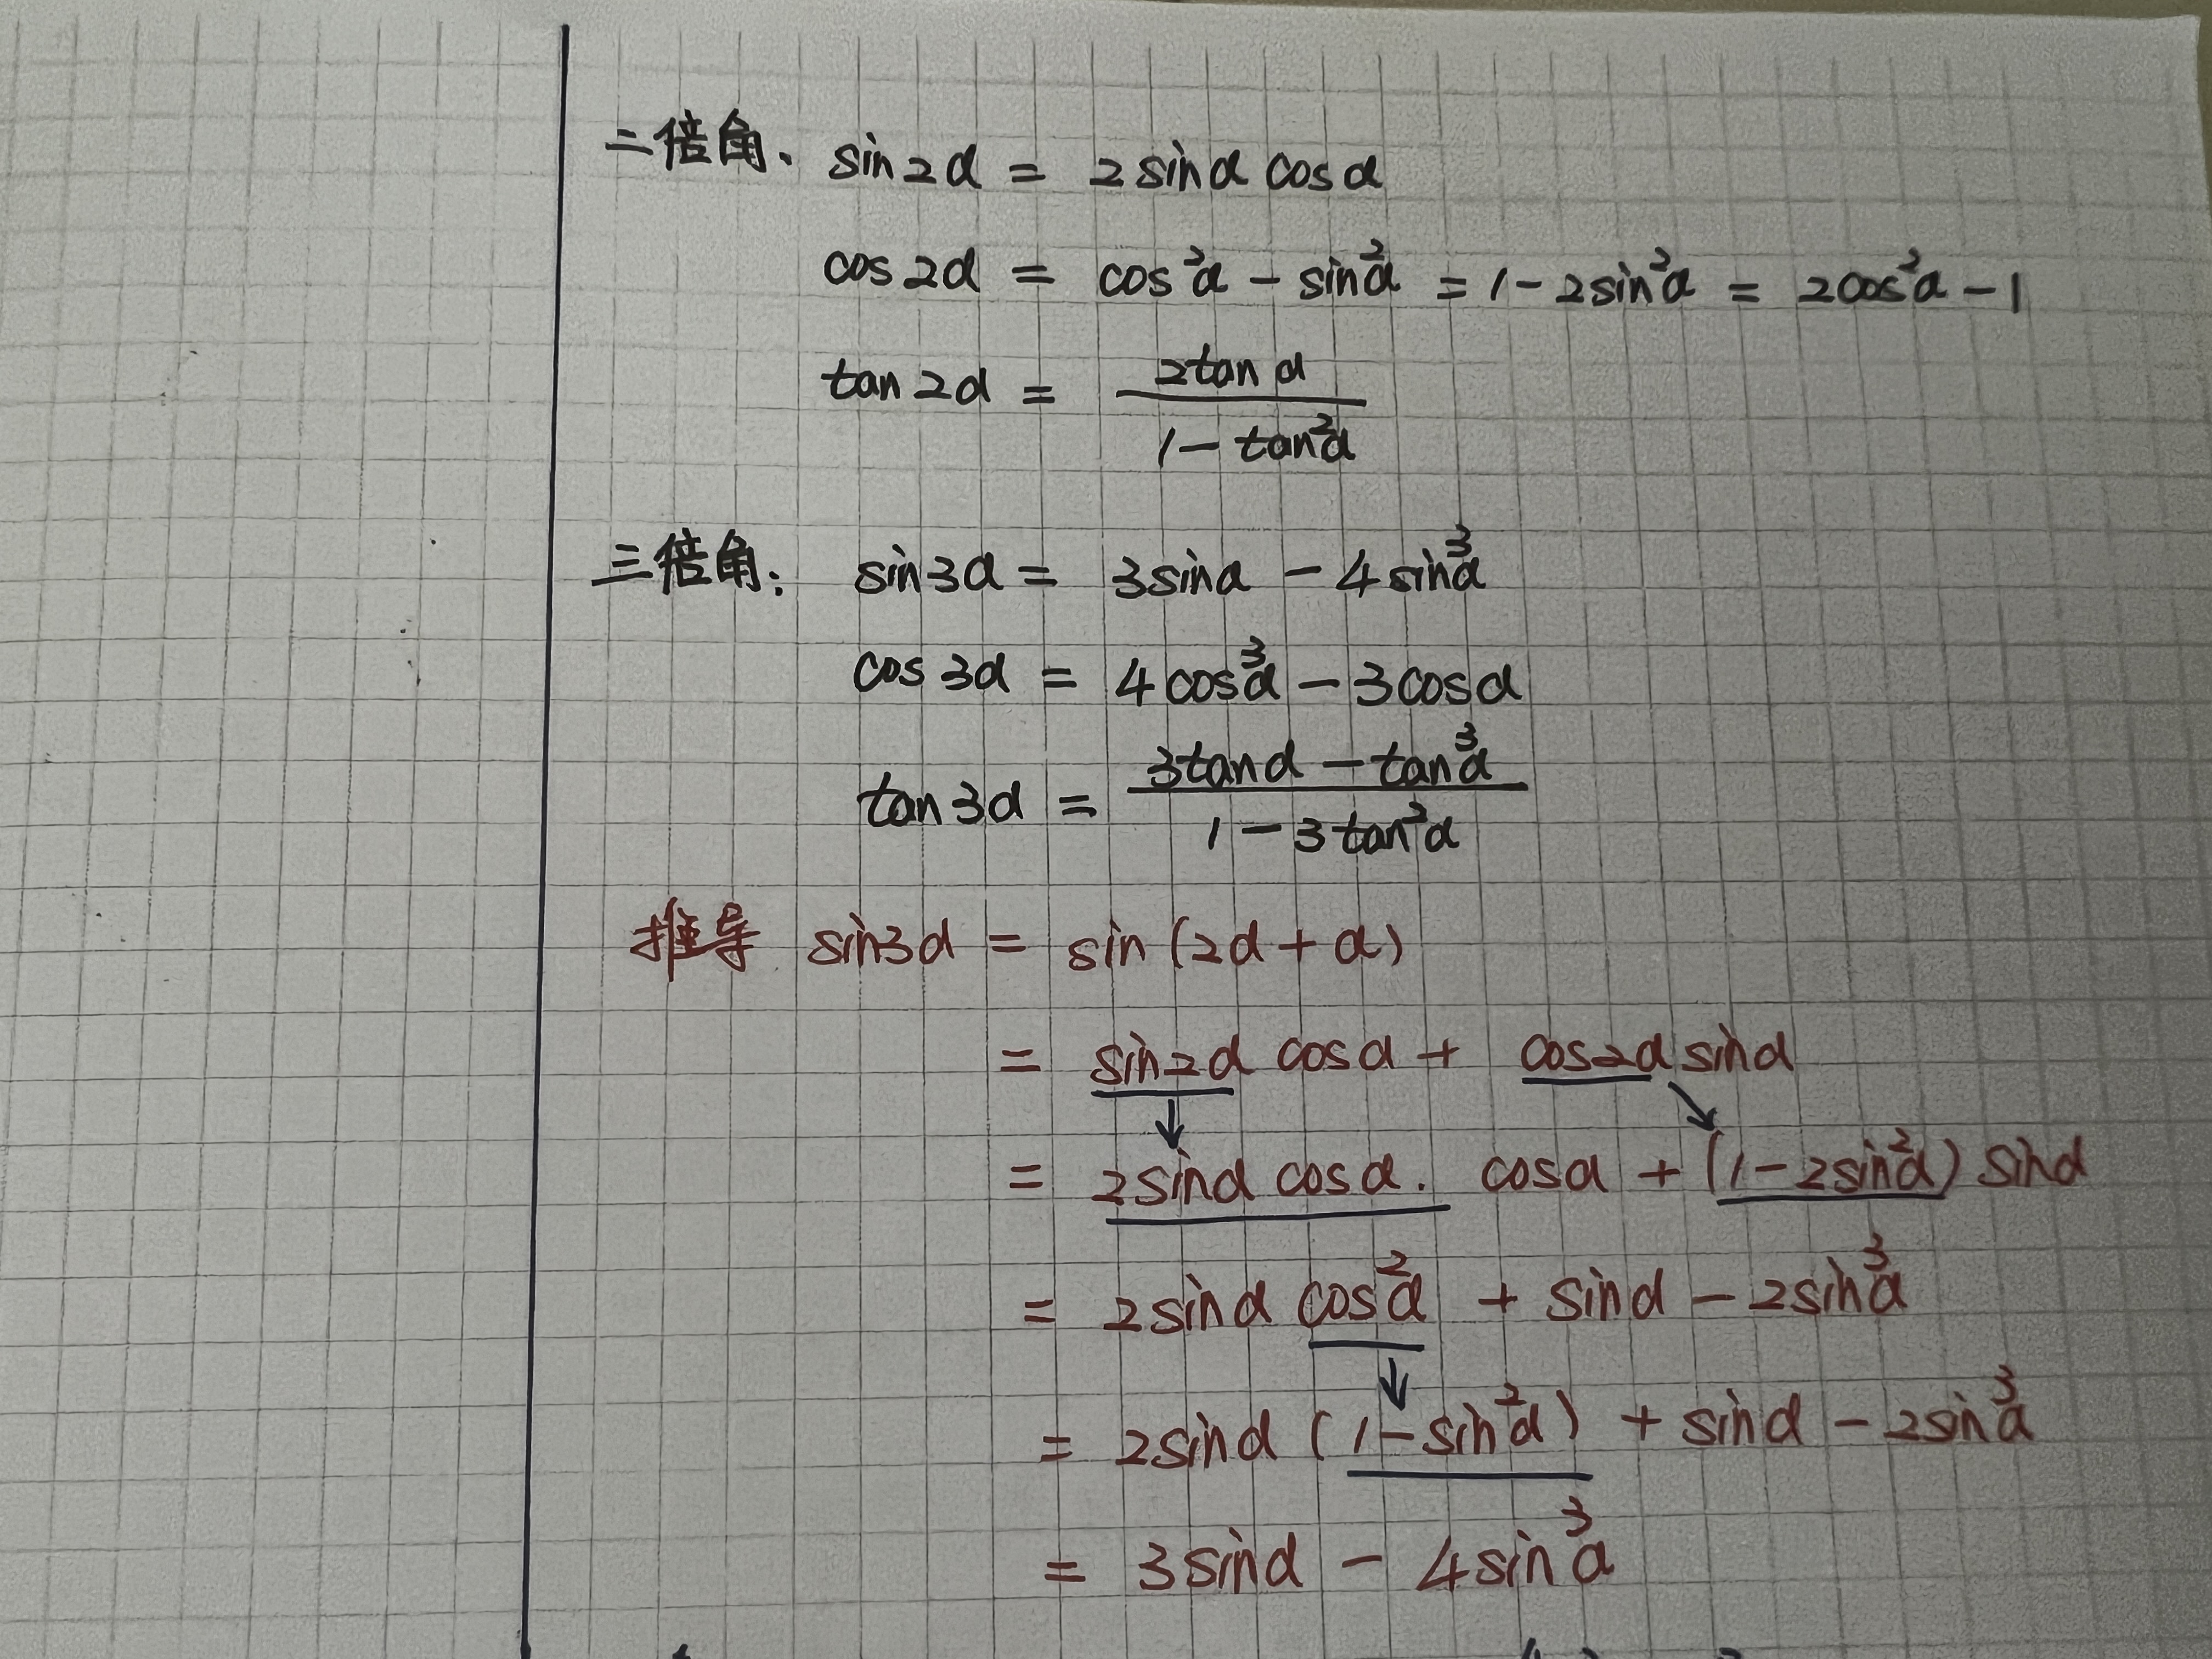 二倍角、 sin2α = 2sinα cosα
cos2α = cos²α - sin²α = 1-2sin²α = 2cos²α-1
tan2α = \frac{2tanα}{1-tan²α}
三倍角: sin3α = 3sinα - 4sin³α
cos3α = 4cos³α - 3cosα
tan3α = \frac{3tanα - tan³α}{1-3tan²α}
推导 sin3α = sin(2α+α)
= sin2α cosα + cos2α sinα
↓ ↘
= 2sinα cosα. cosα + (1-2sin²α) sinα
= 2sinα cos²α + sinα - 2sin³α
↓
= 2sinα (1-sin²α) + sinα - 2sin³α
= 3sinα - 4sin³α